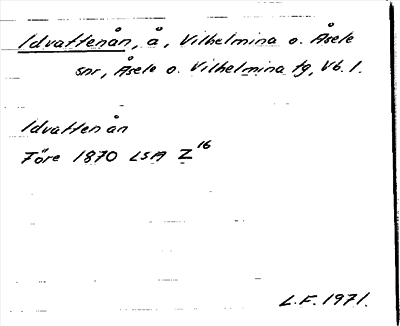 Idvattenån, å, Vilhelmina o. Åsele
snr, Åsele o. Vilhelmina tg, Vb. l.
Idvattenån
Före 1870 LSA Z16
L.F. 1971.